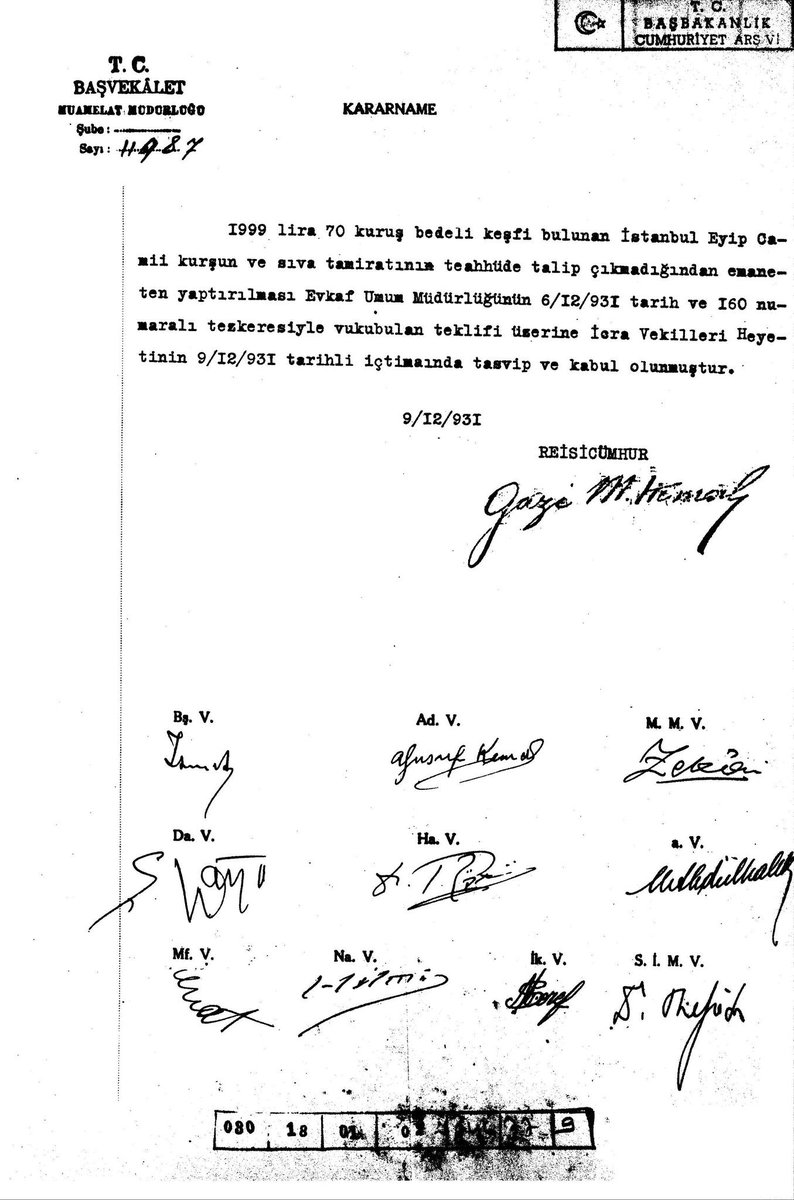 T. C.
BAŞBAKANLIK
CUMHURİYET ARŞİVİ
T. C.
BAŞVEKÂLET
MUAMELAT MÜDÜRLÜĞÜ
Şube:
Sayı: 11987
KARARNAME
I999 lira 70 kuruş bedeli keşfi bulunan İstanbul Eyip Ca-
mii kurşun ve sıva tamiratının teahhüde talip çıkmadığından emane-
ten yaptırılması Evkaf Umum Müdürlüğünün 6/I2/93I tarih ve I60 nu-
maralı tezkeresiyle vukubulan teklifi üzerine İcra Vekilleri Heye-
tinin 9/I2/93I tarihli içtimaında tasvip ve kabul olunmuştur.
9/I2/93I
REİSİCÜMHUR
Gazi M. Kemal
Bş. V.
Ad. V.
M. M. V.
İsmet
Yusuf Kemal
Zekâi
Da. V.
Ha. V.
a. V.
Ş. Kaya
M. Abdülhalik
Mf. V.
Na. V.
İk. V.
S. İ. M. V.
Esat
Hilmi
Dr. Refik
030 18 01 9